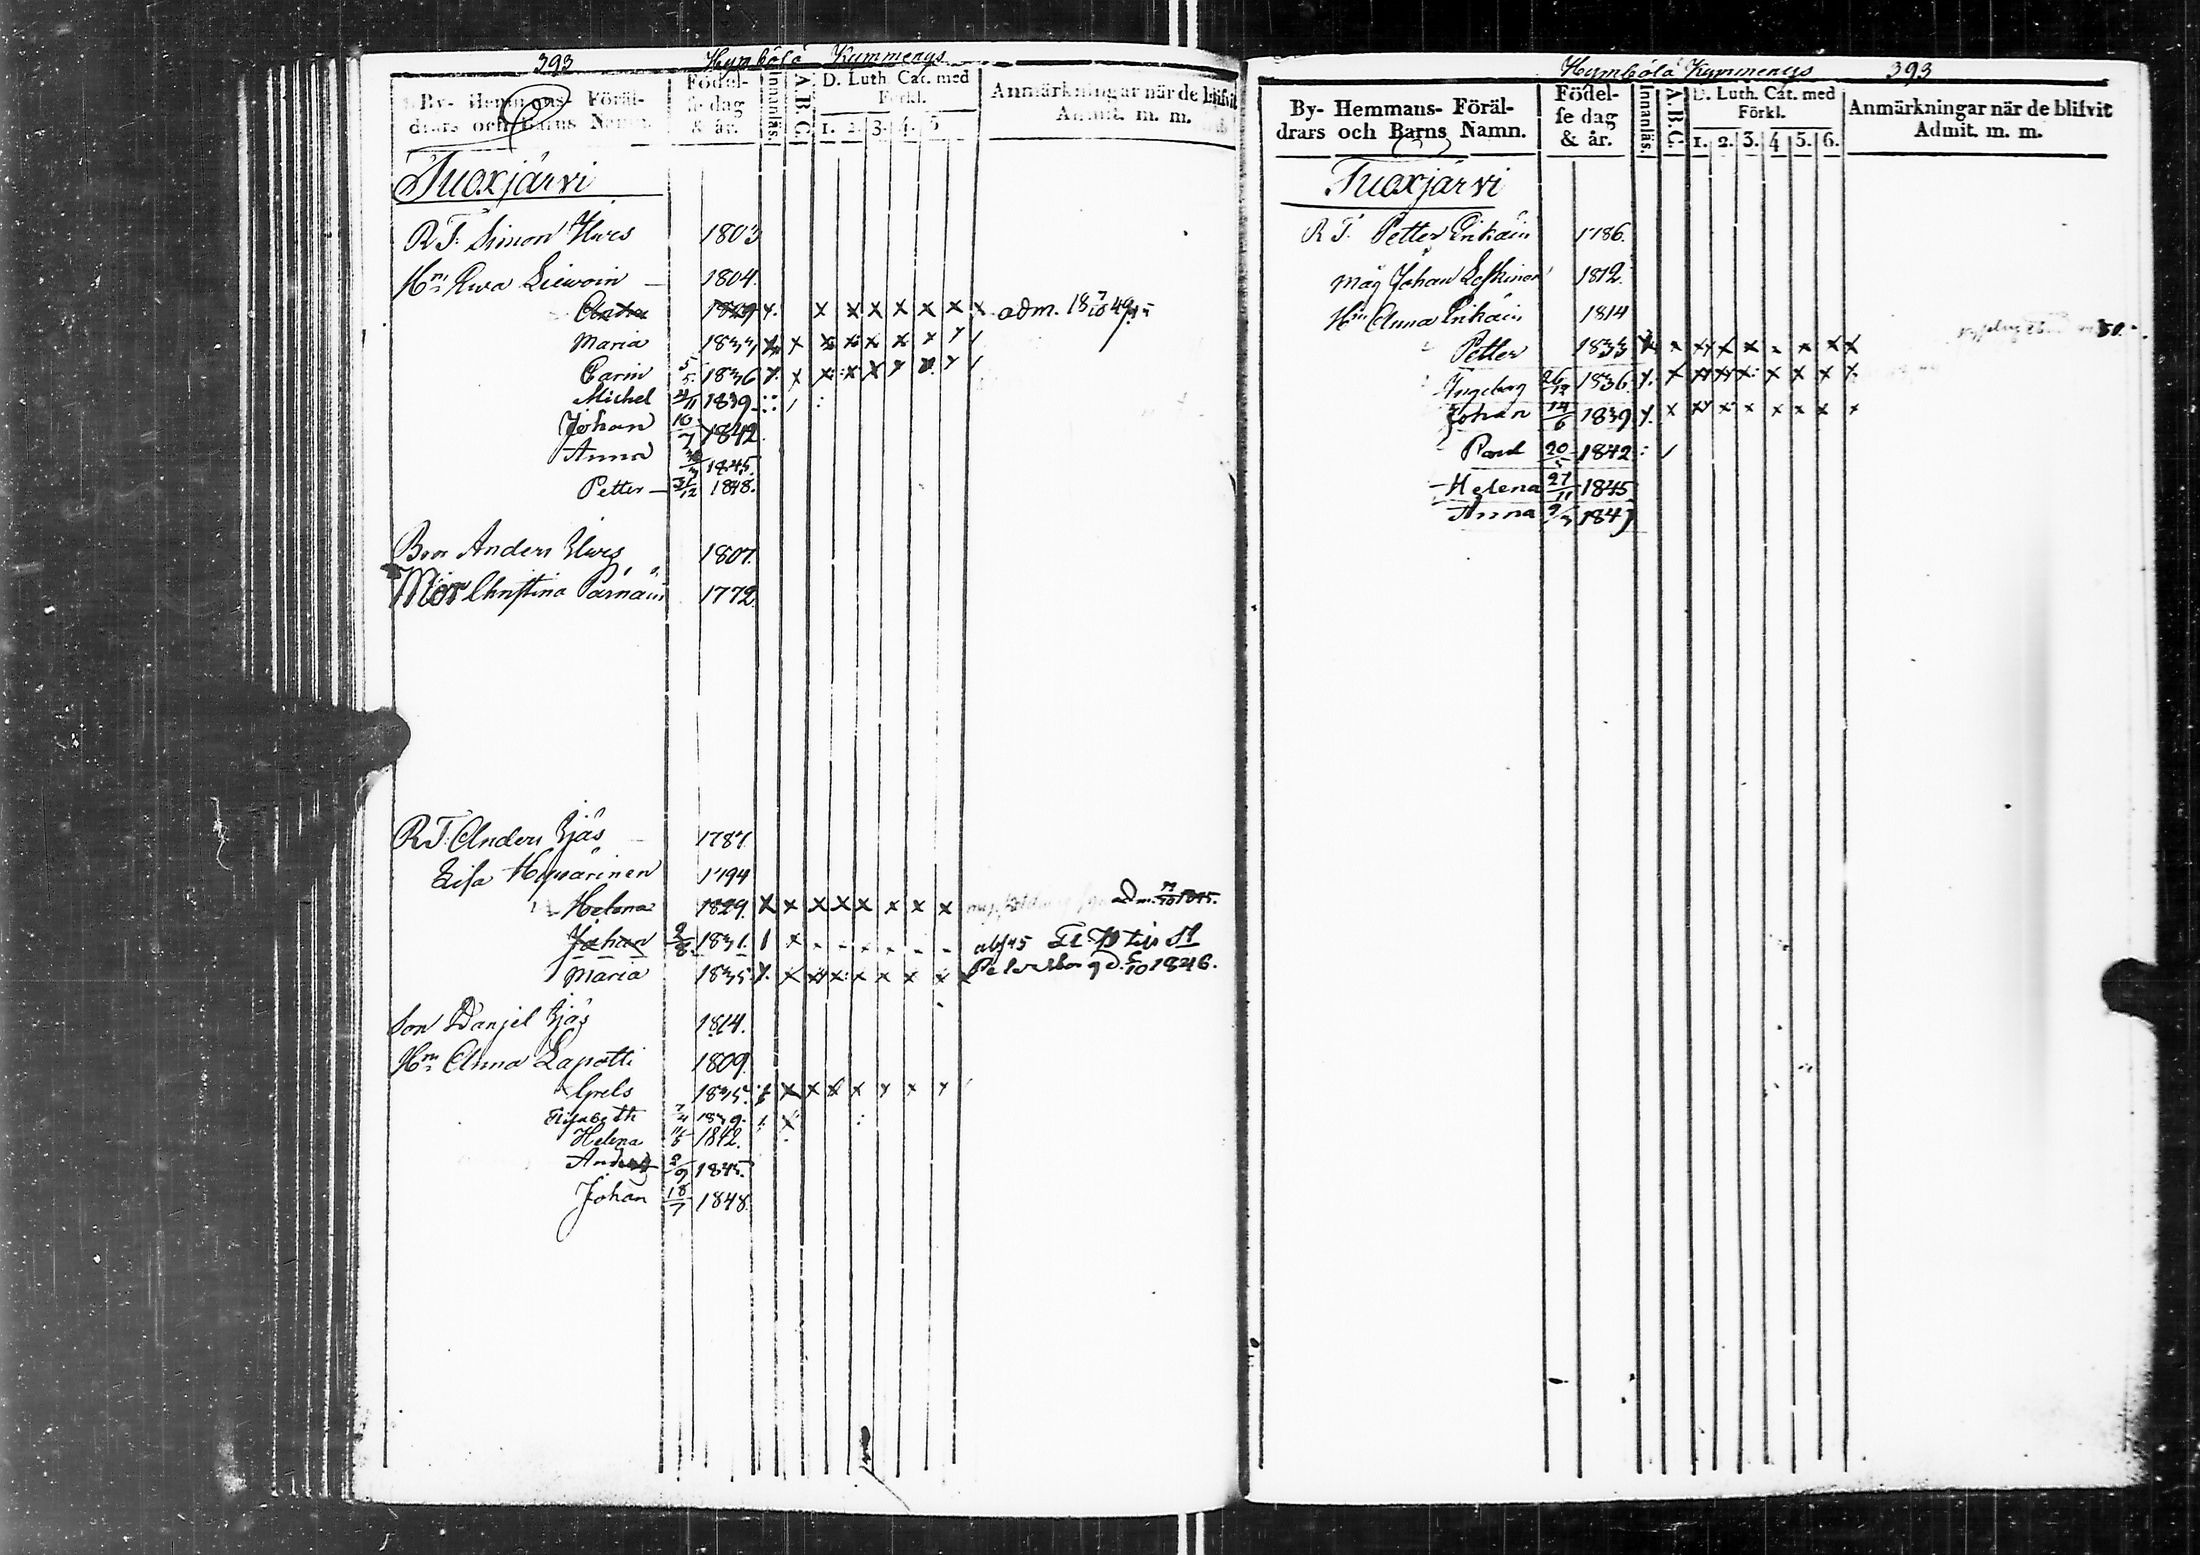 393 Hymbölä Kymmenys
By- Hemmans- Föräl-
drars och Barns Namn.
Födel-
se dag
& år.
Innanläs.
A.B.C.
D. Luth. Cat. med
Förkl.
1. 2. 3. 4. 5
Anmärkningar när de blifvit
Admit. m. m.
Tuoxjärvi
R T. Simon 1803
Hn Ewa 1804.
1829 x. x x x x x x x adm. 18 7/10 49
Maria 1833 x x x x x x x
Carin 5/5 1836 x. x x x x
Michel 4/11 1839
Johan 10/7 1842
Anna 1845.
Petter 31/12 1848.
Bror Anders 1807.
Mor Christina Pärnäin 1772
R T. Anders 1787
Lisa 1794
Helena 1829. x x x x x x x x adm. 1845.
Johan 2/8 1831. 1 x
Petersborg d. 6/10 1846.
Maria 1835 x. x x x x x x x
Son Danjel 1814.
Hn Anna Lapatti 1809.
Grels 1835. x x x x x x x
Elisabeth 1839.
Helena 1842.
Anders 2/9 1845.
Johan 18/7 1848
Hymbölä Kymmenys 393
By- Hemmans- Föräl-
drars och Barns Namn.
Födel-
se dag
& år.
Innanläs.
A.B.C.
D. Luth. Cat. med
Förkl.
1. 2. 3. 4 5. 6.
Anmärkningar när de blifvit
Admit. m. m.
Tuoxjärvi
R T. Petter Inkäin 1786.
Måg Johan Leskinen 1812.
Hn Anna Inkäin 1814
Petter 1833 x x x x x x x x 50.
Ingeborg 26/12 1836. x. x x x x x x x x.
Johan 14/6 1839 x. x x x x x x x x
Paul 20/5 1842
Helena 27/11 1845
Anna 9/3 1849